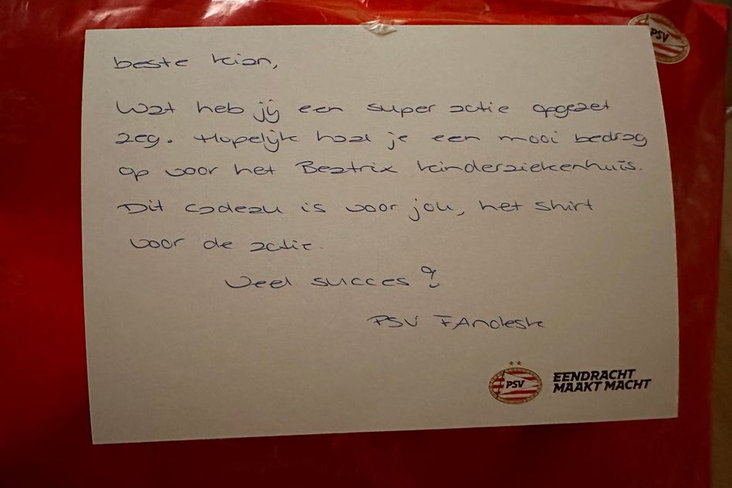 PSV
beste Kian,
Wat heb jij een super actie opgezet
zeg. Hopelijk haal je een mooi bedrag
op voor het Beatrix kinderziekenhuis.
Dit cadeau is voor jou, het shirt
voor de actie.
Veel succes!
PSV FANdesk
PSV
EENDRACHT
MAAKT MACHT